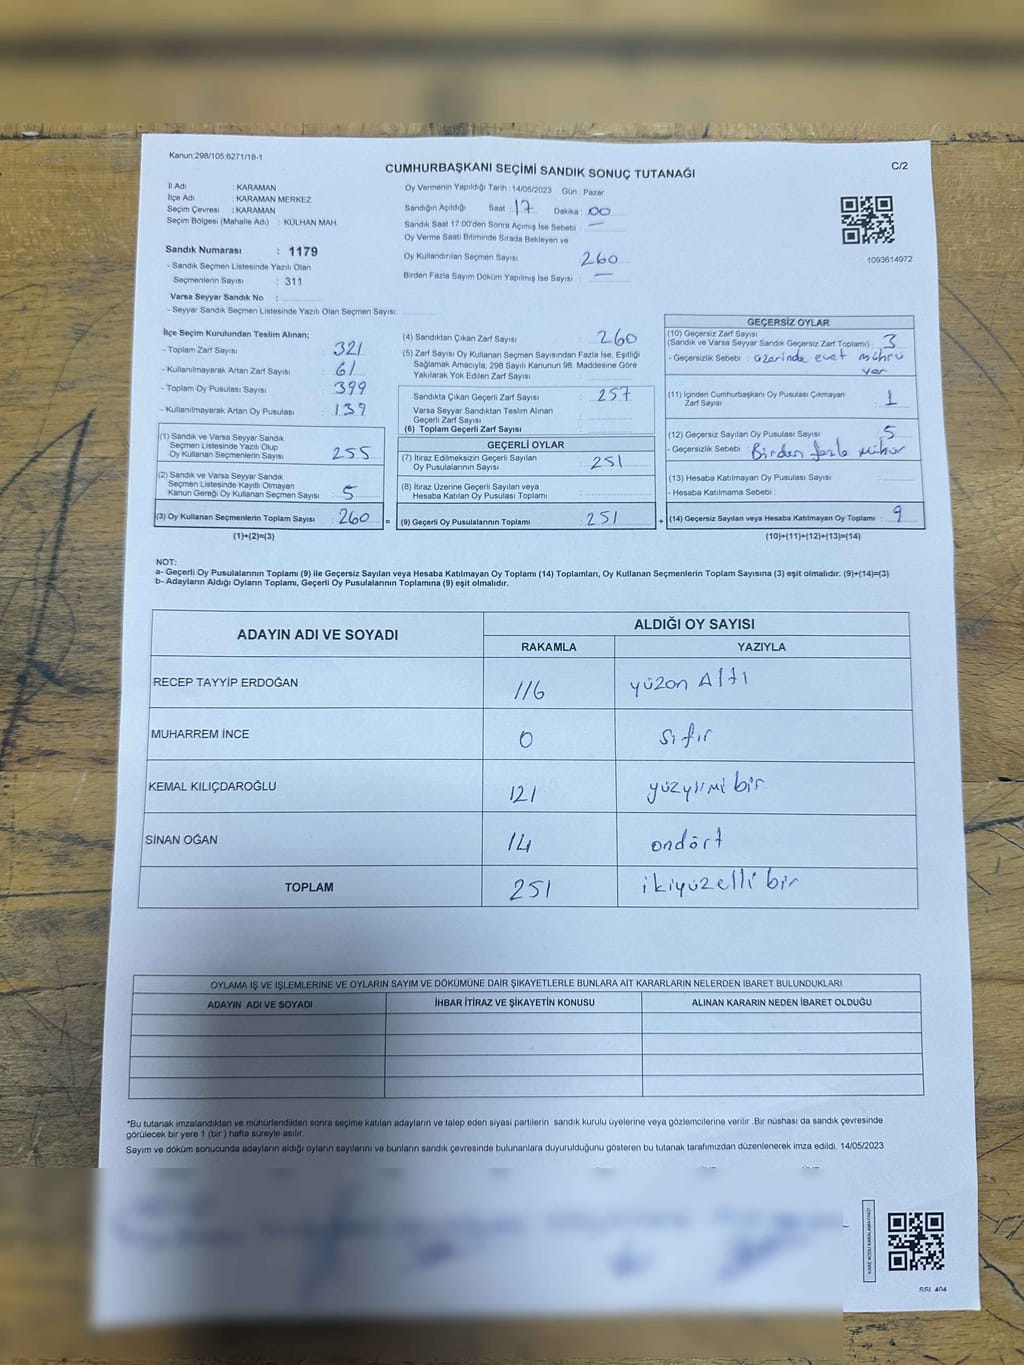 Kanun;298/105,6271/18-1
C/2
CUMHURBAŞKANI SEÇİMİ SANDIK SONUÇ TUTANAĞI
İl Adı : KARAMAN
İlçe Adı : KARAMAN MERKEZ
Seçim Çevresi : KARAMAN
Seçim Bölgesi (Mahalle Adı) : KÜLHAN MAH
Sandık Numarası : 1179
- Sandık Seçmen Listesinde Yazılı Olan
Seçmenlerin Sayısı : 311
Varsa Seyyar Sandık No :
- Seyyar Sandık Seçmen Listesinde Yazılı Olan Seçmen Sayısı :
Oy Vermenin Yapıldığı Tarih : 14/05/2023 Gün : Pazar
Sandığın Açıldığı Saat 17 Dakika : 00
Sandık Saat 17.00'den Sonra Açımış İse Sebebi : —
Oy Verme Saati Bitiminde Sırada Bekleyen ve
Oy Kullandırılan Seçmen Sayısı 260
Birden Fazla Sayım Döküm Yapılmış İse Sayısı : —
1093614972
İlçe Seçim Kurulundan Teslim Alınan;
- Toplam Zarf Sayısı : 321
- Kullanılmayarak Artan Zarf Sayısı : 61
- Toplam Oy Pusulası Sayısı : 399
- Kullanılmayarak Artan Oy Pusulası : 139
(1) Sandık ve Varsa Seyyar Sandık
Seçmen Listesinde Yazılı Olup
Oy Kullanan Seçmenlerin Sayısı 255
(2) Sandık ve Varsa Seyyar Sandık
Seçmen Listesinde Kayıtlı Olmayan
Kanun Gereği Oy Kullanan Seçmen Sayısı : 5
(3) Oy Kullanan Seçmenlerin Toplam Sayısı : 260
(1)+(2)=(3)
(4) Sandıktan Çıkan Zarf Sayısı : 260
(5) Zarf Sayısı Oy Kullanan Seçmen Sayısından Fazla İse, Eşitliği
Sağlamak Amacıyla, 298 Sayılı Kanunun 98. Maddesine Göre
Yakılarak Yok Edilen Zarf Sayısı :
Sandıkta Çıkan Geçerli Zarf Sayısı : 257
Varsa Seyyar Sandıktan Teslim Alınan
Geçerli Zarf Sayısı :
(6) Toplam Geçerli Zarf Sayısı :
GEÇERLİ OYLAR
(7) İtiraz Edilmeksizin Geçerli Sayılan
Oy Pusulalarının Sayısı : 251
(8) İtiraz Üzerine Geçerli Sayılan veya
Hesaba Katılan Oy Pusulası Toplamı :
= (9) Geçerli Oy Pusulalarının Toplamı : 251
GEÇERSİZ OYLAR
(10) Geçersiz Zarf Sayısı
(Sandık ve Varsa Seyyar Sandık Geçersiz Zarf Toplamı) : 3
- Geçersizlik Sebebi : üzerinde evet mührü
var
(11) İçinden Cumhurbaşkanı Oy Pusulası Çıkmayan
Zarf Sayısı : 1
(12) Geçersiz Sayılan Oy Pusulası Sayısı : 5
- Geçersizlik Sebebi : Birden fazla mühür
(13) Hesaba Katılmayan Oy Pusulası Sayısı :
- Hesaba Katılmama Sebebi :
+ (14) Geçersiz Sayılan veya Hesaba Katılmayan Oy Toplamı : 9
(10)+(11)+(12)+(13)=(14)
NOT:
a- Geçerli Oy Pusulalarının Toplamı (9) ile Geçersiz Sayılan veya Hesaba Katılmayan Oy Toplamı (14) Toplamları, Oy Kullanan Seçmenlerin Toplam Sayısına (3) eşit olmalıdır. (9)+(14)=(3)
b- Adayların Aldığı Oyların Toplamı, Geçerli Oy Pusulalarının Toplamına (9) eşit olmalıdır.
ADAYIN ADI VE SOYADI
ALDIĞI OY SAYISI
RAKAMLA YAZIYLA
RECEP TAYYİP ERDOĞAN 116 yüzon Altı
MUHARREM İNCE 0 sıfır
KEMAL KILIÇDAROĞLU 121 yüzyirmi bir
SİNAN OĞAN 14 ondört
TOPLAM 251 ikiyüzelli bir
OYLAMA İŞ VE İŞLEMLERİNE VE OYLARIN SAYIM VE DÖKÜMÜNE DAİR ŞİKAYETLERLE BUNLARA AİT KARARLARIN NELERDEN İBARET BULUNDUKLARI
ADAYIN ADI VE SOYADI İHBAR İTİRAZ VE ŞİKAYETİN KONUSU ALINAN KARARIN NEDEN İBARET OLDUĞU
*Bu tutanak imzalandıktan ve mühürlendikten sonra seçime katılan adayların ve talep eden siyasi partilerin sandık kurulu üyelerine veya gözlemcilerine verilir. Bir nüshası da sandık çevresinde
görülecek bir yere 1 (bir ) hafta süreyle asılır.
Sayım ve döküm sonucunda adayların aldığı oyların sayılarını ve bunların sandık çevresinde bulunanlara duyurulduğunu gösteren bu tutanak tarafımızdan düzenlenerek imza edildi. 14/05/2023